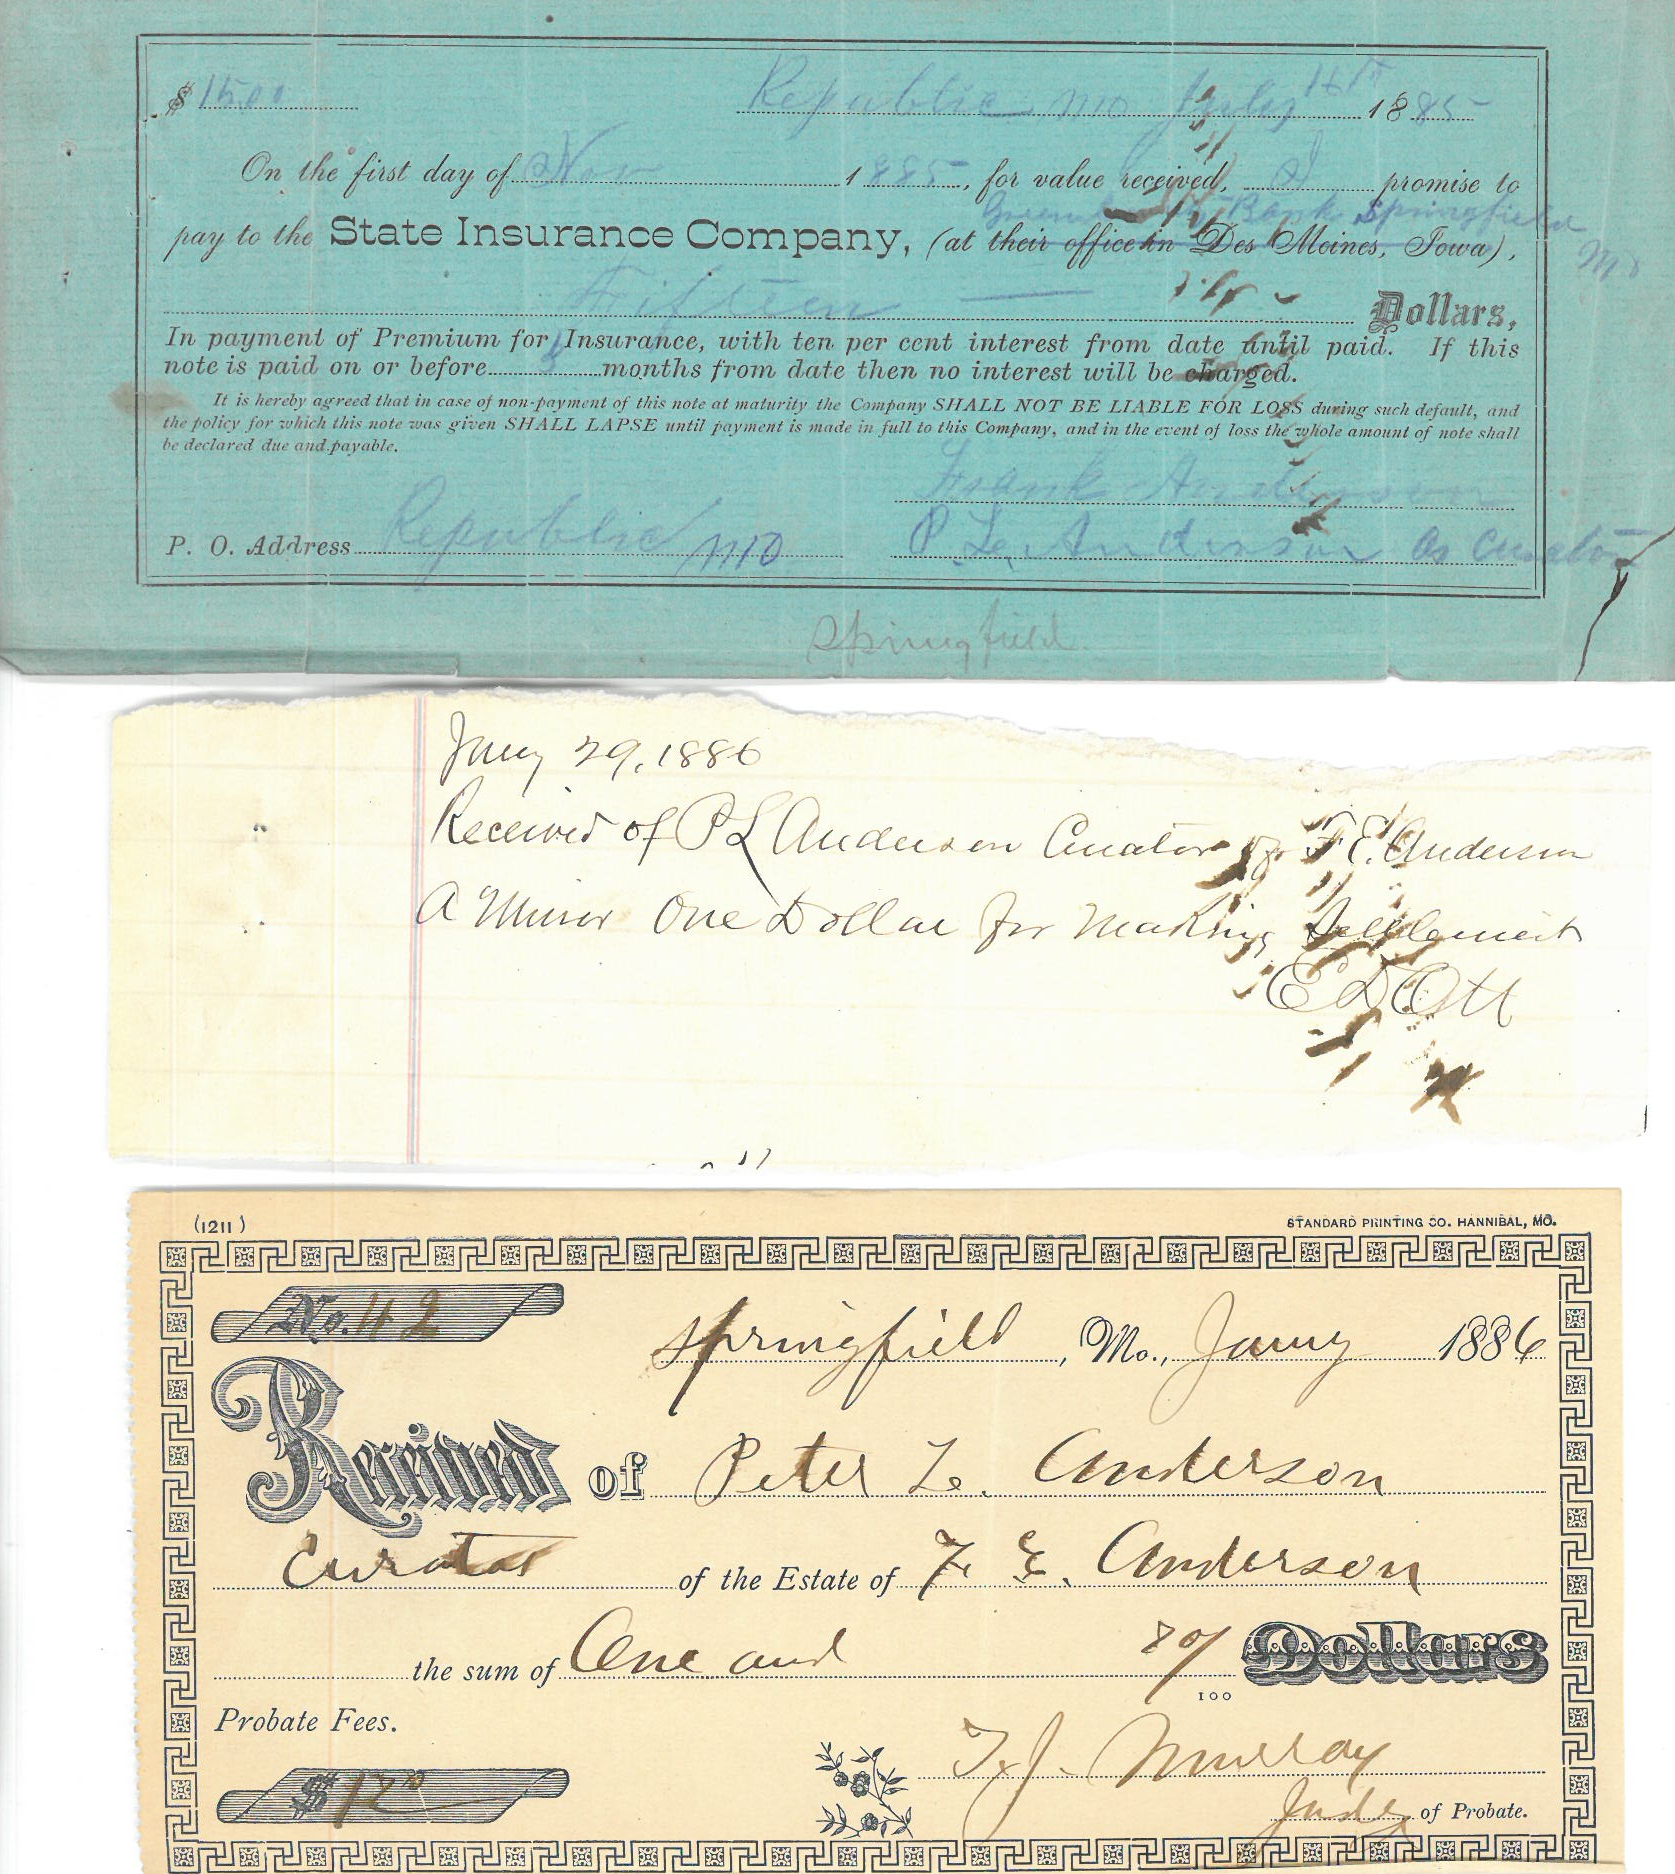 $ 15.00 Republic Mo July 1885
On the first day of Nov 1885, for value received, I promise to
Bank Springfield
Mo
pay to the State Insurance Company, (at their office in Des Moines, Iowa),
Fifteen — Dollars,
In payment of Premium for Insurance, with ten per cent interest from date until paid. If this
note is paid on or before months from date then no interest will be charged.
It is hereby agreed that in case of non-payment of this note at maturity the Company SHALL NOT BE LIABLE FOR LOSS during such default, and
the policy for which this note was given SHALL LAPSE until payment is made in full to this Company, and in the event of loss the whole amount of note shall
be declared due and payable.
Frank Anderson
P. O. Address Republic Mo P. L. Anderson as Curator
Springfield
Jany 29, 1886
Received of P L Anderson Curator of F E. Anderson
A Minor One Dollar for Making Settlement
E D Ott
(1211) STANDARD PRINTING CO. HANNIBAL, MO.
No. 42
Springfield, Mo., Jany 1886
Received of Peter L. Anderson
Curator of the Estate of F. E. Anderson
the sum of One and 80/100 Dollars
Probate Fees.
T. J. Murray
$1 80
Judge of Probate.